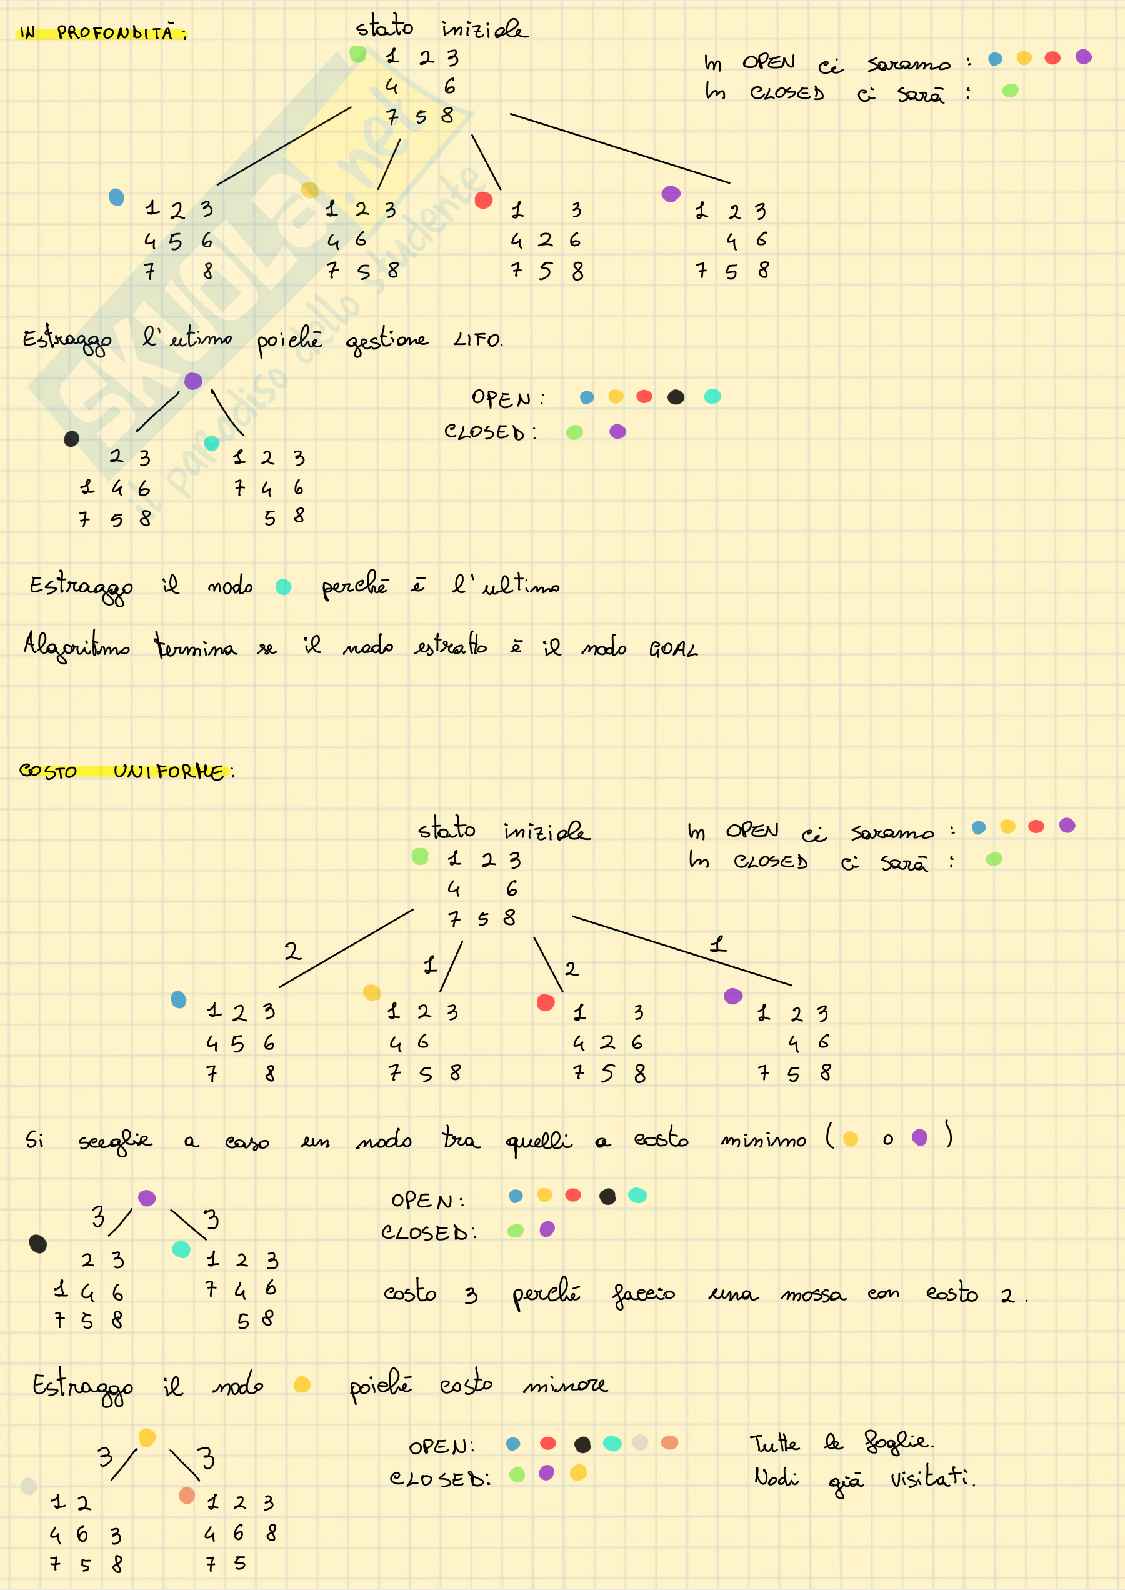 IN PROFONDITÀ:
stato iniziale
1 2 3
4 6
7 5 8
In OPEN ci saranno:
In CLOSED ci sarà:
1 2 3
4 5 6
7 8
1 2 3
4 6
7 5 8
1 3
4 2 6
7 5 8
1 2 3
4 6
7 5 8
Estraggo l'ultimo poiché gestione LIFO.
OPEN:
CLOSED:
2 3
1 4 6
7 5 8
1 2 3
7 4 6
5 8
Estraggo il nodo perché è l'ultimo
Algoritmo termina se il nodo estratto è il nodo GOAL
COSTO UNIFORME:
stato iniziale
1 2 3
4 6
7 5 8
In OPEN ci saranno:
In CLOSED ci sarà:
2 1 2 1
1 2 3
4 5 6
7 8
1 2 3
4 6
7 5 8
1 3
4 2 6
7 5 8
1 2 3
4 6
7 5 8
Si sceglie a caso un nodo tra quelli a costo minimo ( o )
3 3
OPEN:
CLOSED:
2 3
1 4 6
7 5 8
1 2 3
7 4 6
5 8
costo 3 perché faccio una mossa con costo 2.
Estraggo il nodo poiché costo minore
3 3
OPEN:
Tutte le foglie.
CLOSED:
Nodi già visitati.
1 2
4 6 3
7 5 8
1 2 3
4 6 8
7 5
SKUOLA.net
il paradiso dello studente